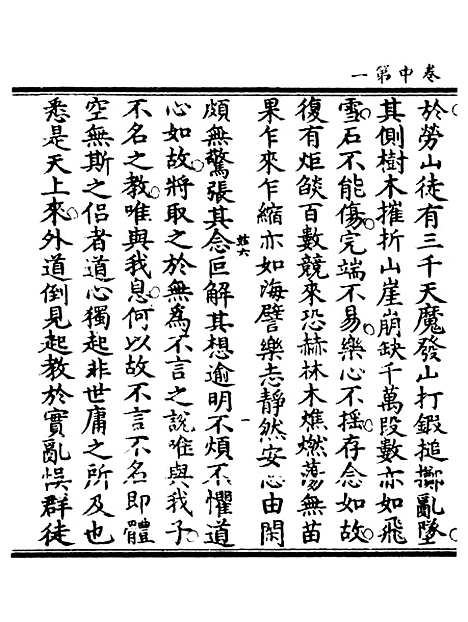 卷中第一
於勞山徒有三千天魔發山打鍛搥擲亂墜
其側樹木摧折山崖崩缺千萬段數亦如飛
雪石不能傷完端不易樂心不搖存念如故
復有炬燄百數競來恐赫林木燋燃蕩無苗
果乍來乍縮亦如海譬樂志靜然安心由閑
頗無驚張其念叵解其想逾明不煩不懼道
心如故將取之於無為不言之說唯與我子
不名之教唯與我息何以故不言不名即體
空無斯之侶者道心獨起非世庸之所及也
悉是天上來外道倒見起教於實亂悞群徒
一